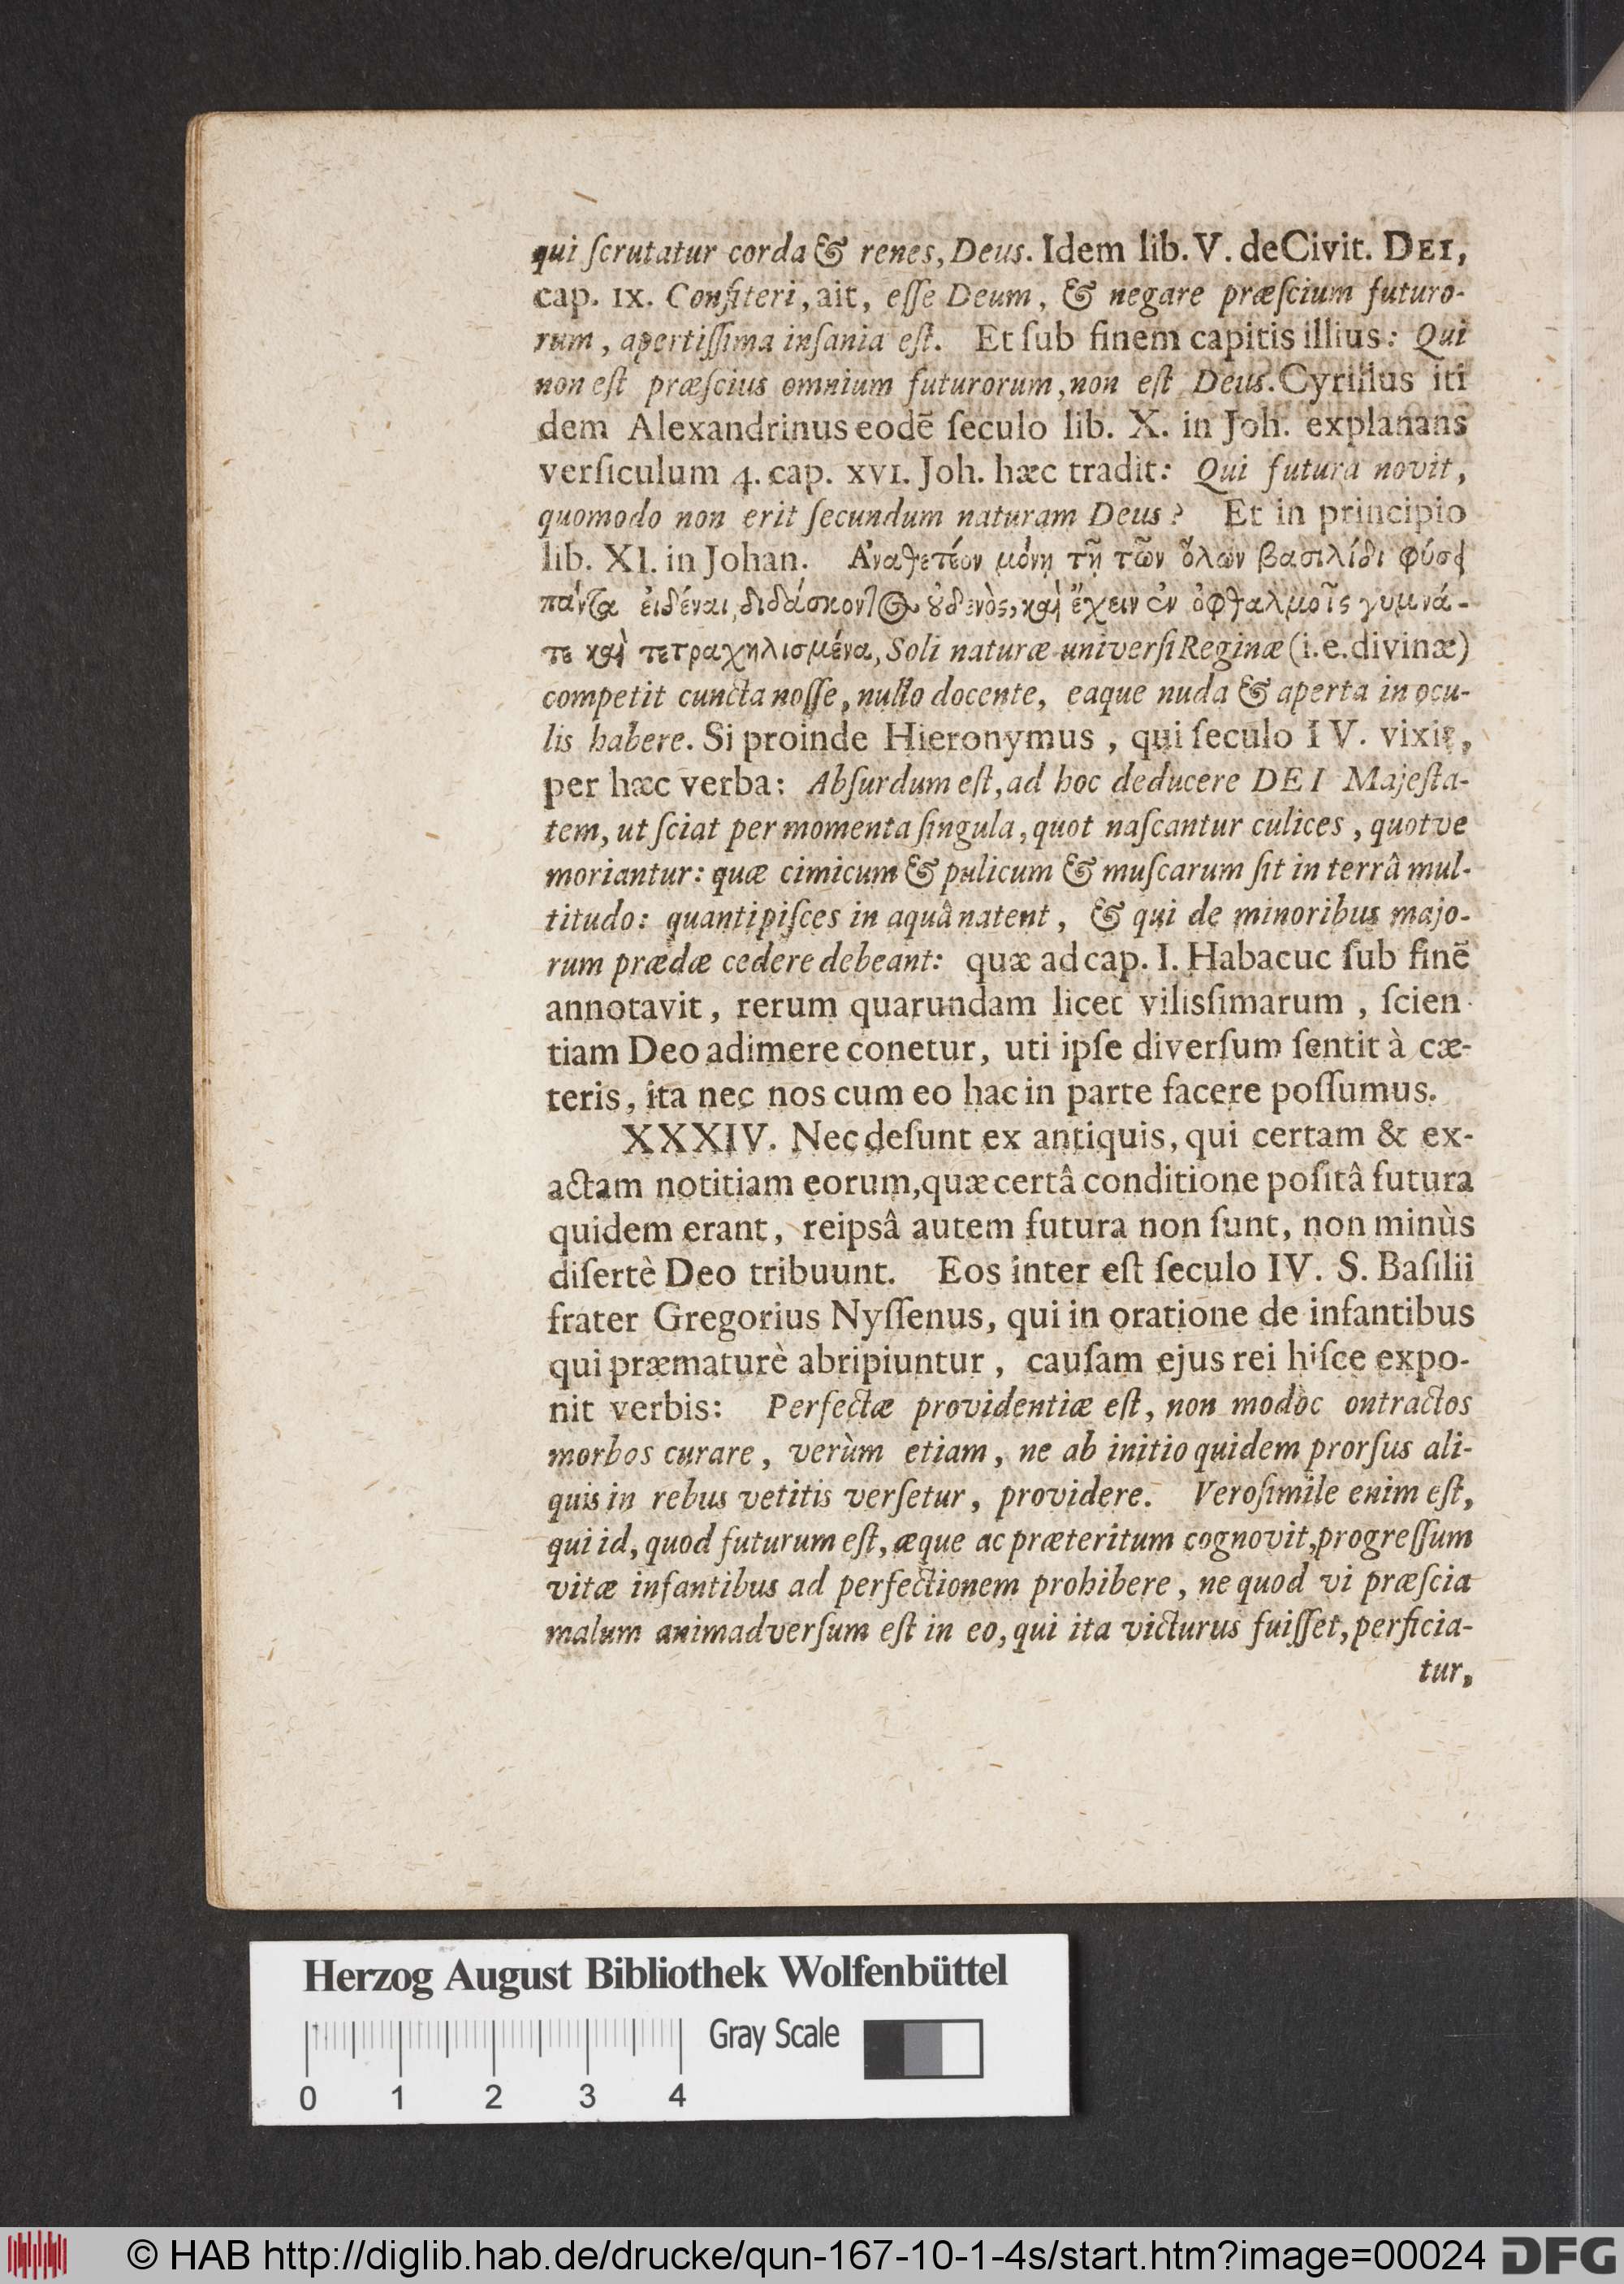 qui ſcrutatur corda & renes, Deus. Idem lib. V. deCivit. DEI,
cap. IX. Confiteri, ait, eſſe Deum, & negare præſcium futuro-
rum, apertiſſima inſania eſt. Et ſub finem capitis illius: Qui
non eſt præſcius omnium futurorum, non eſt Deus. Cyrillus iti
dem Alexandrinus eodē ſeculo lib. X. in Joh. explanans
verſiculum 4. cap. XVI. Joh. hæc tradit: Qui futura novit,
quomodo non erit ſecundum naturam Deus? Et in principio
lib. XI. in Johan. Ἀναθετέον μόνῃ τῇ τῶν ὅλων βασιλίδι φύσει
πάντα εἰδέναι, διδάσκοντος οὐδενὸς, καὶ ἔχειν ἐν ὀφθαλμοῖς γυμνά-
τε καὶ τετραχηλισμένα, Soli naturæ univerſi Reginæ (i.e. divinæ)
competit cuncta noſſe, nullo docente, eaque nuda & aperta in ocu-
lis habere. Si proinde Hieronymus, qui ſeculo IV. vixit,
per hæc verba: Abſurdum eſt, ad hoc deducere DEI Majeſta-
tem, ut ſciat per momenta ſingula, quot naſcantur culices, quotve
moriantur: quæ cimicum & pulicum & muſcarum ſit in terrâ mul-
titudo: quanti piſces in aquâ natent, & qui de minoribus majo-
rum prædæ cedere debeant: quæ ad cap. I. Habacuc ſub finē
annotavit, rerum quarundam licet vilisſimarum, ſcien-
tiam Deo adimere conetur, uti ipſe diverſum ſentit à cæ-
teris, ita nec nos cum eo hac in parte facere poſſumus.
XXXIV. Nec deſunt ex antiquis, qui certam & ex-
actam notitiam eorum, quæ certâ conditione poſitâ futura
quidem erant, reipsâ autem futura non ſunt, non minùs
diſertè Deo tribuunt. Eos inter eſt ſeculo IV. S. Baſilii
frater Gregorius Nyſſenus, qui in oratione de infantibus
qui præmaturè abripiuntur, cauſam ejus rei hiſce expo-
nit verbis: Perfectæ providentiæ eſt, non modòc ontractos
morbos curare, verùm etiam, ne ab initio quidem prorſus ali-
quis in rebus vetitis verſetur, providere. Veroſimile enim eſt,
qui id, quod futurum eſt, æque ac præteritum cognovit, progreſſum
vitæ infantibus ad perfectionem prohibere, ne quod vi præſcia
malum animadverſum eſt in eo, qui ita victurus fuiſſet, perficia-
tur,
Herzog August Bibliothek Wolfenbüttel
Gray Scale
0 1 2 3 4
© HAB http://diglib.hab.de/drucke/qun-167-10-1-4s/start.htm?image=00024 DFG